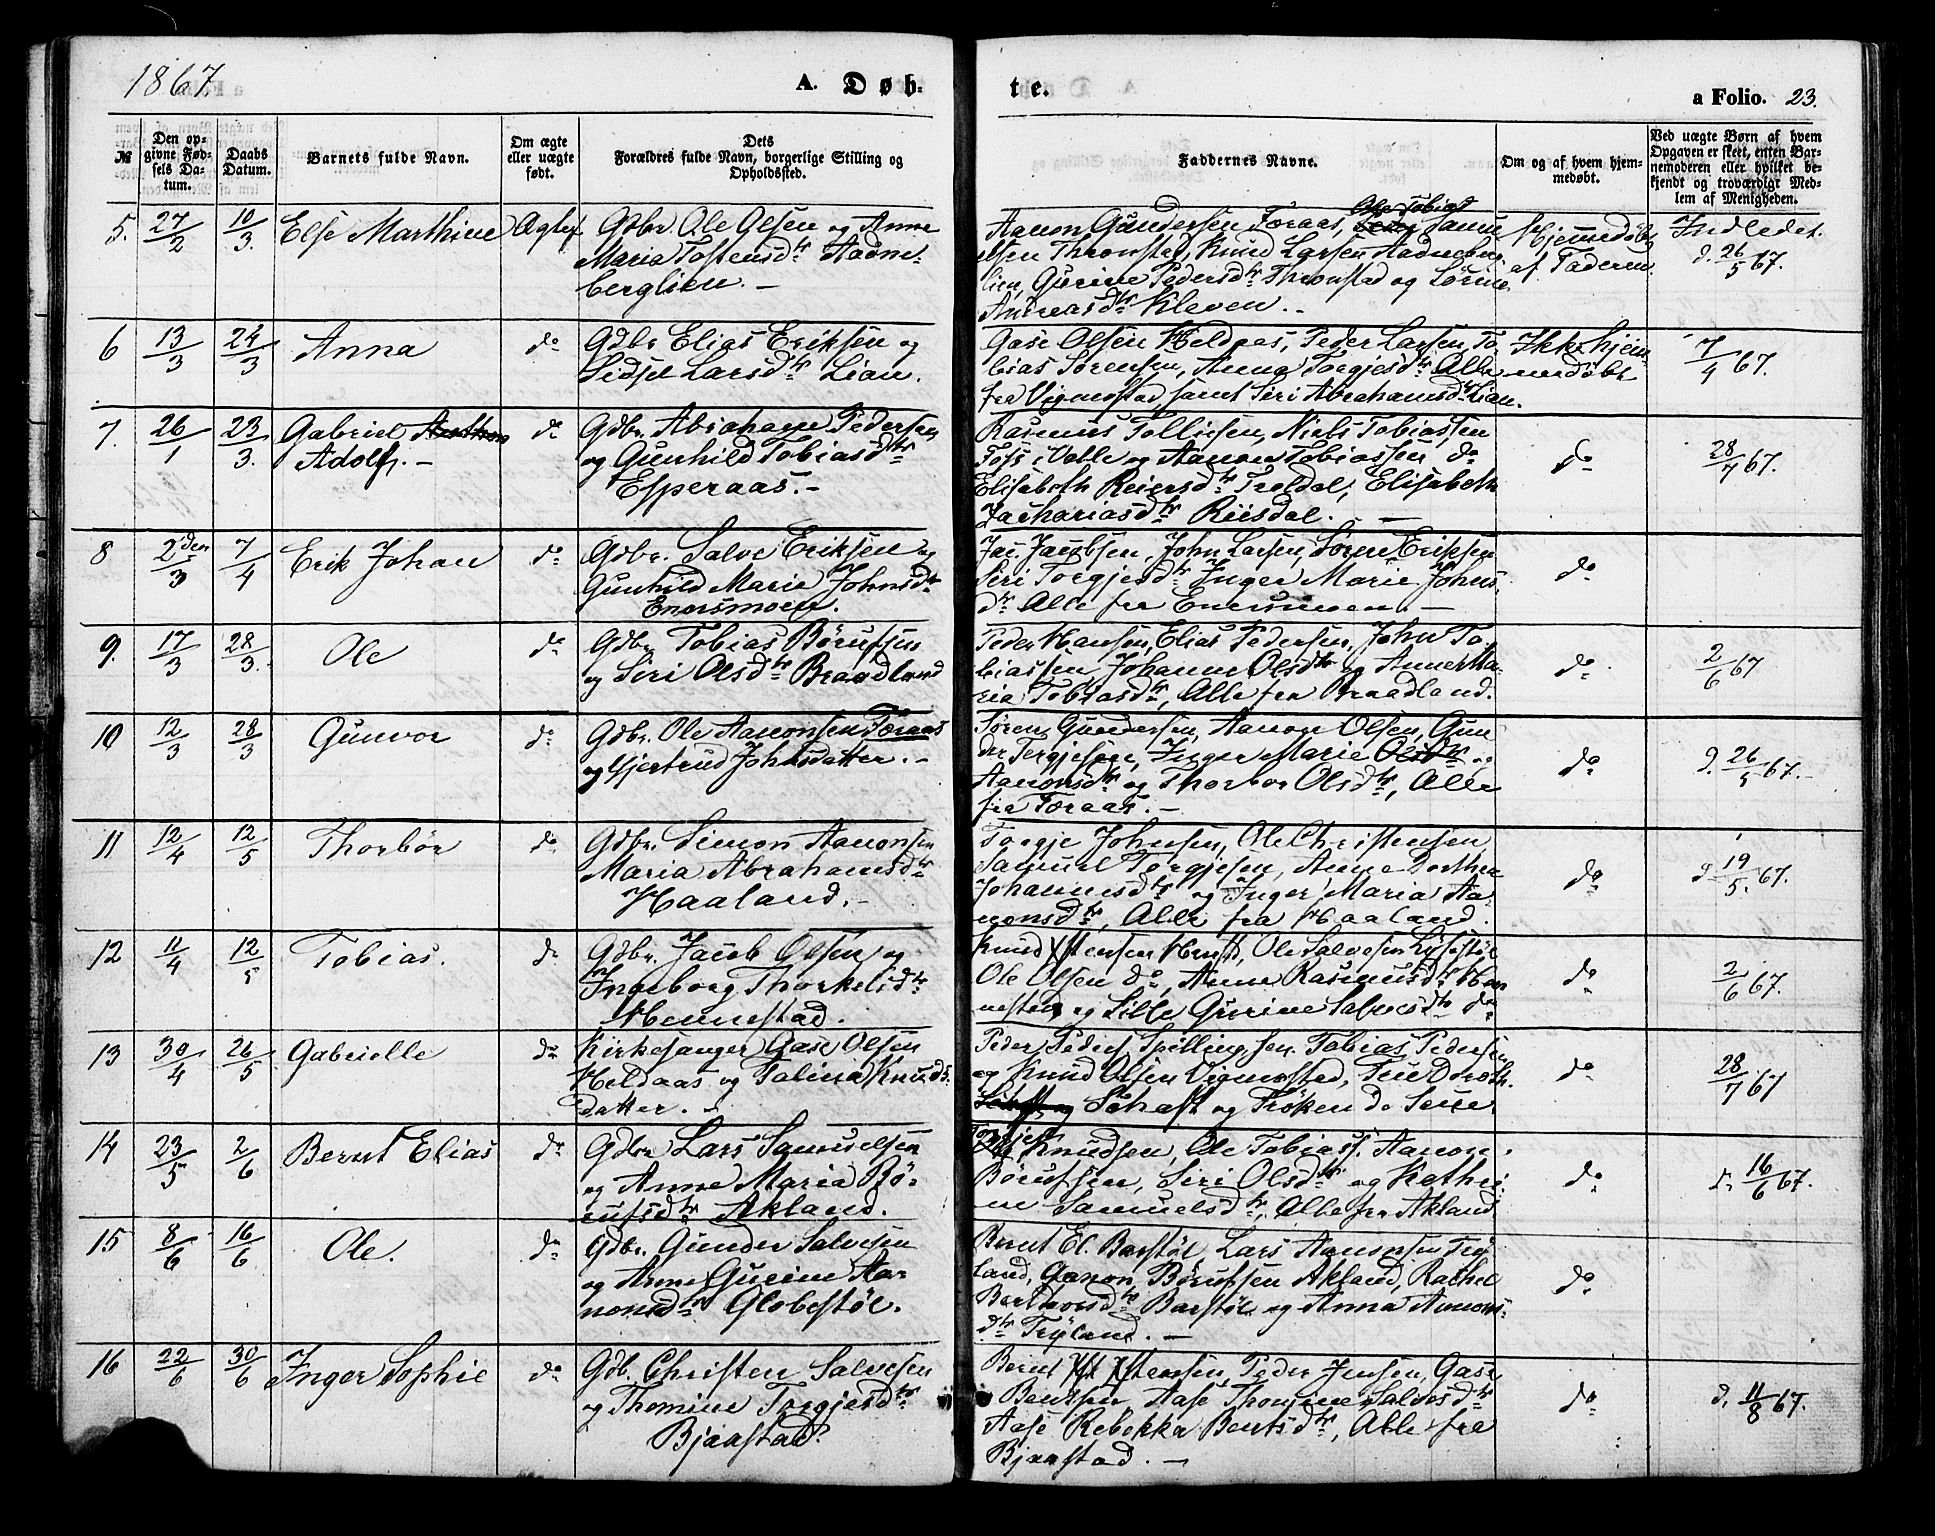 1867.
A. Døb-
te.
a Folio. 23.
№
Den op-
givne Fød-
sels Da-
tum.
Daabs
Datum.
Barnets fulde Navn.
Om ægte
eller uægte
født.
Dets
Forældres fulde Navn, borgerlige Stilling og
Opholdssted.
Faddernes Navne.
Om og af hvem hjem-
medøbt.
Ved uægte Børn af hvem
Opgaven er skeet, enten Bar-
nemoderen eller hvilket be-
kjendt og troværdigt Med-
lem af Menigheden.
5. 27/2 10/3. Else Marthine Ægtef.
Gdbr. Ole Olsen og Anne
Maria Tostensdtr Aadne-
berglien. -
Ole Tobias
Aanon Gundersen Foraas, Samu
elsen Thronstad, Knud Larsen Aadneberg
lien, Gurine Pedersdtr Thronstad og Sørine
Andreasdtr Kleven. -
Hjemmedøbt
af Faderen
Indledet.
d. 26/5 67.
6 13/3 24/3 Anna do
Gdbr Elias Eriksen og
Sidsel Larsdtr Lian.
Gase Olsen Heldaas, Peder Larsen, To
bias Sørensen, Anna Torgjesdtr Alle
fra Vigmostad, samt Siri Abrahamsdtr Lian.
Ikke hjem-
medøbt
7/4 67.
7. 26/1 23/3. Gabriel
Adolf. - do
Gdbr. Abraham Pedersen
og Gunhild Tobiasdtr
Esperaas. -
Rasmus Tollisen, Niels Tobiassen
Foss, Valle og Aanon Tobiassen do
Elisabeth Reiersdtr Troldal, Elisabeth
Zachariasdtr Riisdal. -
do
28/4 67.
8 2den/3 7/4 Erik Johan do
Gdbr. Salve Eriksen og
Gunhild Marie Johnsdtr
Enersmoen.
Jac. Jacobsen, John Larsen, Sørine Eriksen
Siri Torgjesdtr Inger Marie Johns
dtr Alle fra Enersmoen. -
do
9. 17/3 28/3. Ole do
Gdbr. Tobias Børufsen
og Siri Olsdtr Braadland
Peder Hansen, Elias Pedersen, John To
biassen Johanne Olsdtr og Anne Ma-
ria Tobiasdtr, Alle fra Braadland.
do
2/6 67
10 12/3 28/3 Gunvor do
Gdbr. Ole Aanonsen Foraas
og Gjertrud Johnsdatter. -
Søren Gundersen, Aanon Olsen, Gun
der Tergjesen, Inger Marie Olsdtr og
Aanonsdtr og Thorbor Olsdtr, Alle
fra Foraas. -
do
d. 26/5 67. -
11 12/4 12/5 Thorbør do
Gdbr. Simon Aanonsen
Maria Abrahamsdtr
Haaland. -
Torgje Johnsen, Ole Christensen,
Samuel Torgjesen, Anne Dorthea
Johannesdtr og Inger Maria Aa-
nonsdtr, Alle fra Haaland.
do
d 19/5. 67.
12 11/4 12/5 Tobias. do
Gdbr. Jacob Olsen og
Ingeborg Thorkelsdtr
Hennestad.
Knud Ole Salvesen
Ole Olsen do, Anne Rasmusdtr Hen
nestad og Sille Gurine Salvesdtr do
do
2/6 67.
13 30/4 26/5 Gabrielle do
Kirkesanger Gase Olsen
Heldaas og Talina Knuds-
datter. -
Peder Tobias Pedersen
og Knud Olsen Vigmostad,
Schaft og Frøken do
do
28/7 67
14 23/5 2/6 Bernt Elias do
Gdbr Lars Samuelsen
og Anne Maria Bø-
rufsdtr Akland.
Torgjes
Knudsen, Ole Tobiass. Aanon
Børufsen, Siri Olsdtr og Kathri
ne Samuelsdtr, Alle fra Akland
do
d. 16/6 67.
15 8/6 16/6 Ole. do
Gdbr. Gunder Salvesen
og Anne Gurine Aa
nonsdtr Globestøl.
Bernt El. Barstøl, Lars Aanonsen Try
land, Aanon Børufsen Akland, Rachel
Barstøl og Anna Aanons-
dtr Tryland. -
do
16 22/6 30/6 Inger Sophie do
Gdb. Christen Salvesen
og Thomine Torgjesdtr
Bjaastad.
Bernt Ystensen, Peder Jensen, Gase
Bentsen Aase Thomine Salvesdtr
Aase Rebekka Bentsdtr, Alle fra
Bjaastad. -
do
d. 11/8 67.